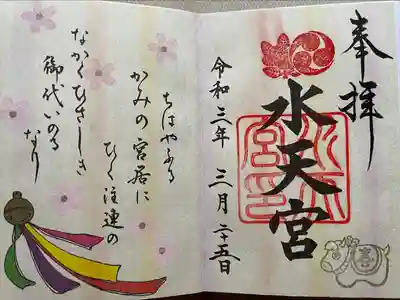 奉拝
水天宮
令和三年三月二五日
ちはやふる
かみの宮居に
ひく注連の
なかくひさしき
御代いのる
なり